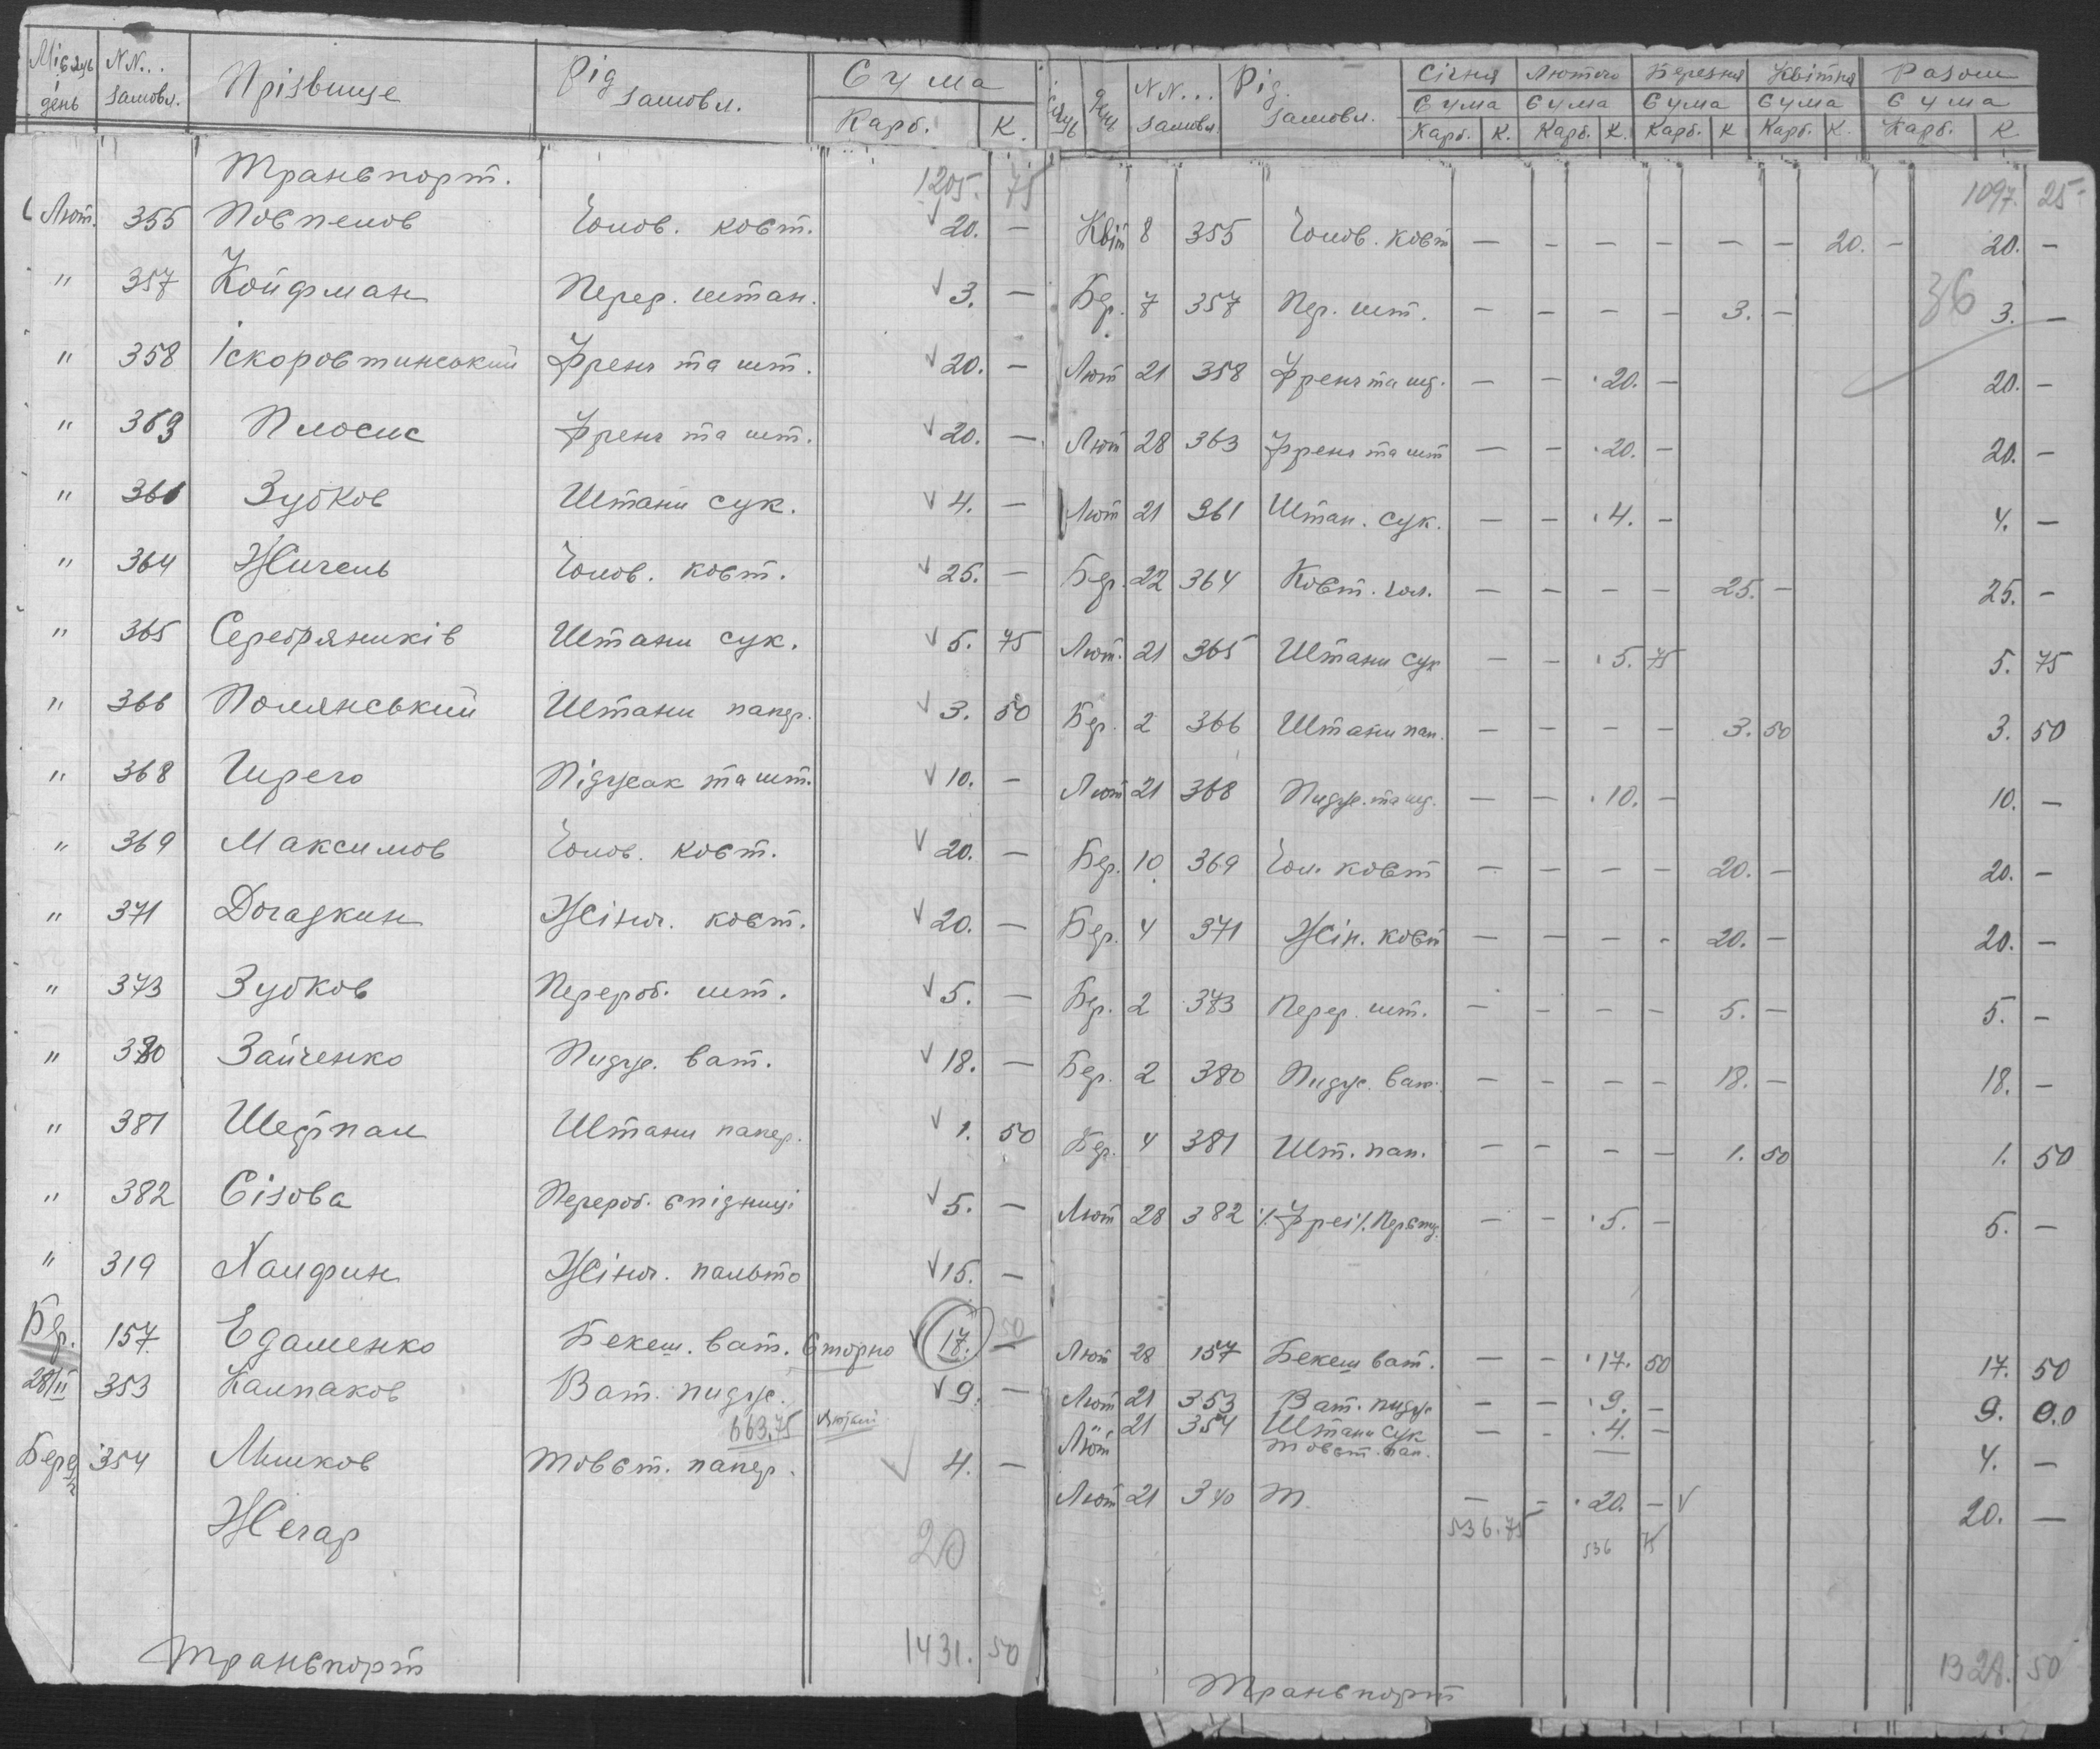 Місяць і день NN... замовл. Прізвище Рід замовл. Сума Карб. К.
Транспорт. 1205. 75
Лют. 355 Повпелов Чолов. ковт. √ 20. —
" 357 Койфман Перер. штан. √ 3. —
" 358 Іскоровтинський Френч та шт. √ 20. —
" 363 Плосис Френч та шт. √ 20. —
" 361 Зубков Штани сук. √ 4. —
" 364 Жичель Чолов. ковт. √ 25. —
" 365 Серебряників Штани сук. √ 5. 75
" 366 Полянський Штани папер. √ 3. 50
" 368 Щрего Підҗсак та шт. √ 10. —
" 369 Максимов Чолов. ковт. √ 20. —
" 371 Догадкин Жіноч. ковт. √ 20. —
" 373 Зубков Перероб. шт. √ 5. —
" 380 Зайченко Пидж. ват. √ 18. —
" 381 Шедпал Штани папер. √ 1. 50
" 382 Сізова Перероб. спідниці √ 5. —
" 319 Халфин Жіноч. пальто √ 15. —
Бер. 157 Едаменко Бекеш. ват. Сторно √ 17. 50
28/II 353 Калпаков Ват. пидж. √ 9. —
663,75 Лютий
Бере 354 Мишков Товст. папер. √ 4. —
Жегар 20
Транспорт 1431. 50
День NN... замовл. Рід. замовл. Січня Лютого Березня Квітня Разом
Сума Сума Сума Сума Сума
Карб. К. Карб. К. Карб. К Карб. К. Карб. К
1097. 25
Квіт 8 355 Чолов. ковт — — — — — — 20. — 20. —
36
Бер. 7 357 Пер. шт. — — — — 3. — 3. —
Лют 21 358 Френч та шт. — — 20. — 20. —
Лют 28 363 Френч та шт — — 20. — 20. —
Лют 21 361 Штан. сук. — — 4. — 4. —
Бер. 22 364 Ковт. чол. — — — — 25. — 25. —
Лют. 21 365 Штани сук — — 5. 75 5. 75
Бер. 2 366 Штани пап. — — — — 3. 50 3. 50
Лют 21 368 Пидж. та шт. — — 10. — 10. —
Бер. 10 369 Чол. ковт — — — — 20. — 20. —
Бер. 4 371 Жін. ковт — — — — 20. — 20. —
Бер. 2 373 Перер. шт. — — — — 5. — 5. —
Бер. 2 380 Пидж. ват. — — — — 18. — 18. —
Бер. 4 381 Шт. пап. — — — — 1. 50 1. 50
Лют 28 382 — — 5. — 5. —
Лют 28 157 Бекеш ват. — — 17. 50 17. 50
Лют 21 353 Ват. пидж — — 9. — 9. 00
Лют 21 354 Штани сук — — 4. — 4. —
товст. пап.
Лют 21 340 Т. — — 20. — √ 20. —
536.75 536 75
Транспорт 1328. 50